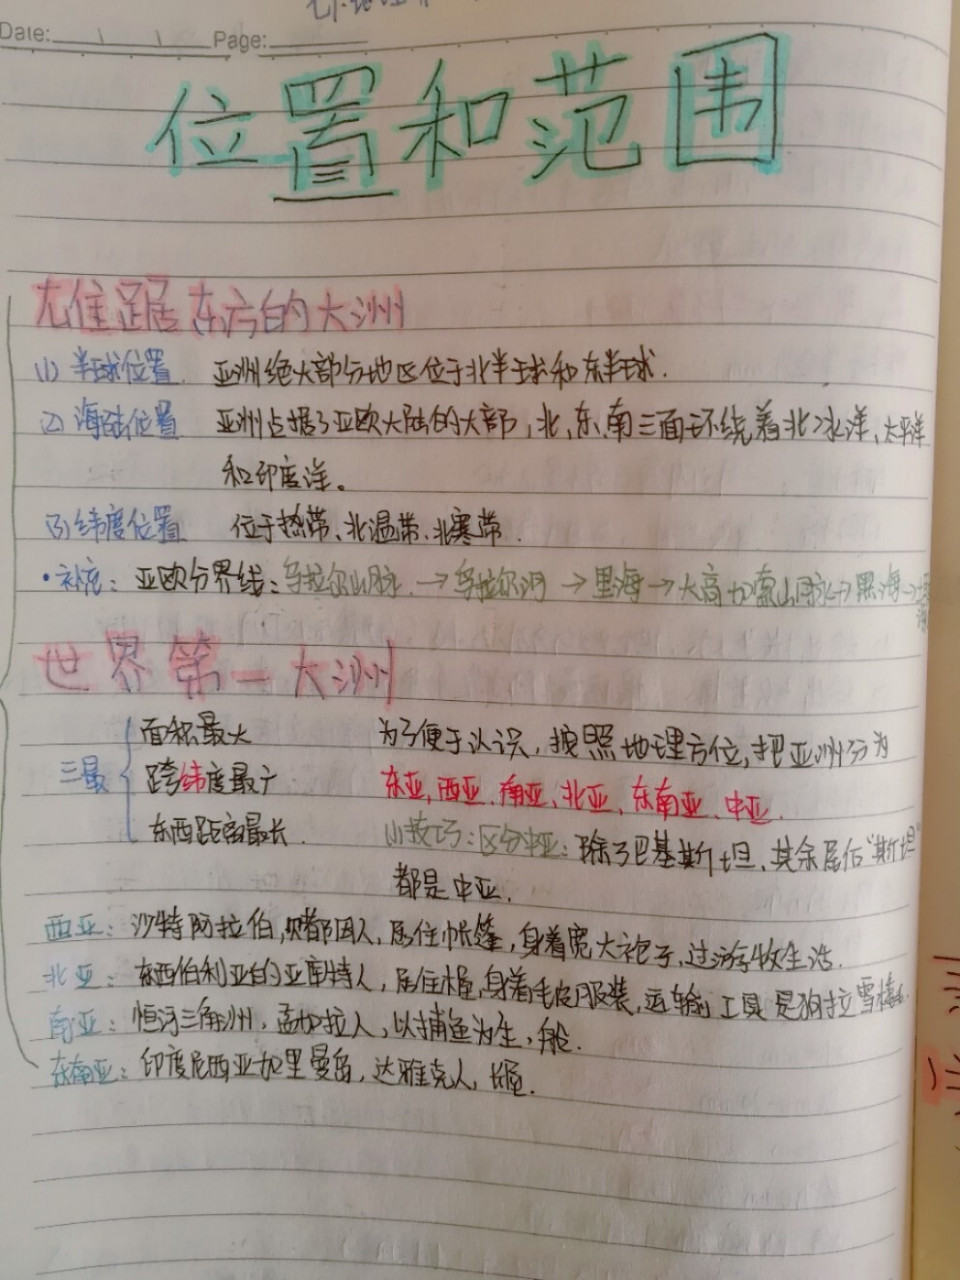 Date: Page:
位置和范围
雄踞东方的大洲
(1) 半球位置 亚洲绝大部分地区位于北半球和东半球.
(2) 海陆位置 亚洲占据了亚欧大陆的大部,北、东、南三面环绕着北冰洋、太平洋
和印度洋。
(3) 纬度位置 位于热带、北温带、北寒带.
·补充: 亚欧分界线: 乌拉尔山脉 → 乌拉尔河 → 里海 → 大高加索山脉 → 黑海 →
世界第一大洲
三最
面积最大 为了便于认识,按照地理方位,把亚洲分为
跨纬度最广 东亚、西亚、南亚、北亚、东南亚、中亚.
东西距离最长. 小技巧: 区分中亚: 除了巴基斯坦,其余尾后"斯坦"
都是中亚.
西亚: 沙特阿拉伯,贝都因人,居住帐篷,身着宽大袍子,过游牧生活.
北亚: 东西伯利亚的亚库特人,居住木屋,身着毛皮服装,运输工具是狗拉雪橇.
南亚: 恒河三角洲,孟加拉人,以捕鱼为生,船.
东南亚: 印度尼西亚加里曼岛,达雅克人,长屋.